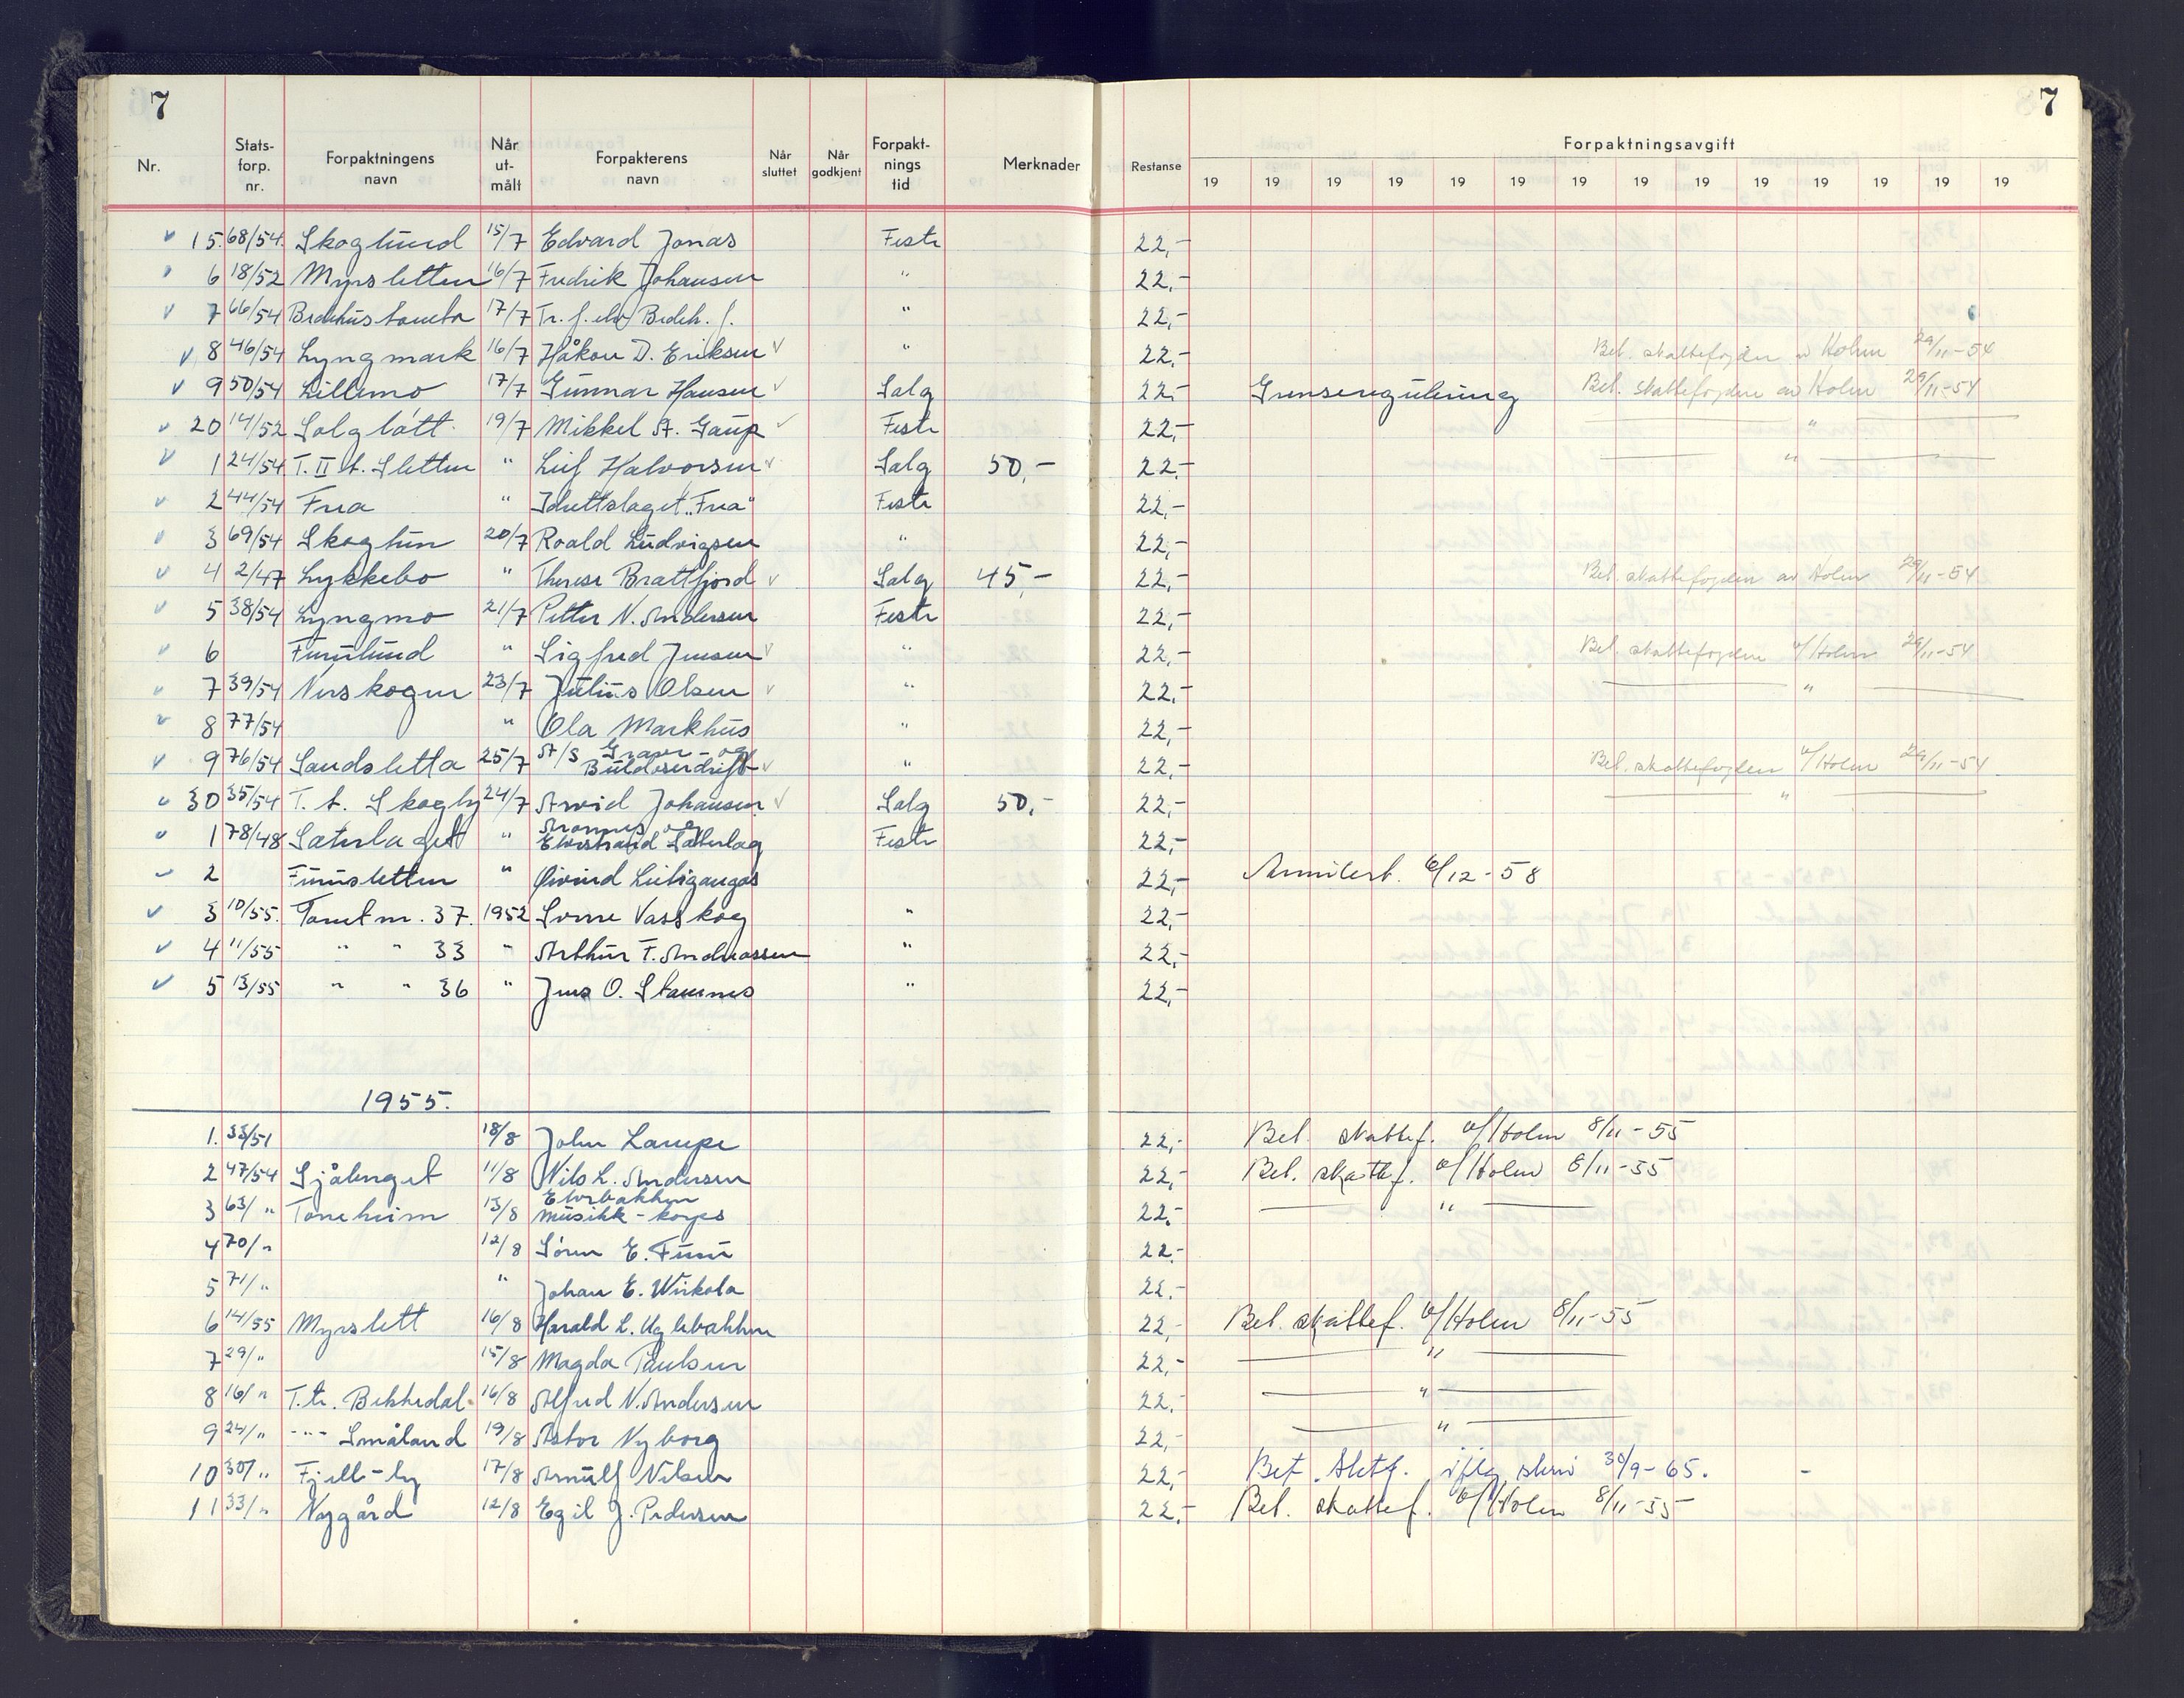 7 7
Nr. Stats-forp. nr. Forpaktningens navn Når ut-målt Forpakterens navn Når sluttet Når godkjent Forpakt-nings tid Merknader Restanse Forpaktningsavgift
19 19 19 19 19 19 19 19 19 19 19 19 19 19
15. 68/54. Skoglund 15/7 Edvard Jonas Feste 22,-
6 18/52 Myrsletten 16/7 Fredrik Johansen " 22,-
7 66/54 17/7 " 22,-
8 46/54 Lyngmark 16/7 Håkon D. Eriksen " 22,- Bet. skattefogden v Holm 29/11-54
9 50/54 Lillemo 17/7 Gunnar Hansen Salg 22,- Grenseregulering Bet. skattefogden av Holm 29/11-54
20 14/52 Solglått 19/7 Mikkel A. Gaup Feste 22,- "
1 24/54 T. II t. Sletten " Leif Halvorsen Salg 50,- 22,- "
2 44/54 Frea " Idrettslaget "Frea" Feste 22,-
3 69/54 Skogtun 20/7 Roald Ludvigsen " 22,-
4 2/47 Lykkebo " Therese Brattfjord Salg 45,- 22,- Bet. skattefogden av Holm 29/11-54
5 38/54 Lyngmo 21/7 Petter N. Andersen Feste 22,-
6 Furulund " Sigfred Jensen " 22,- Bet. skattefogden v/Holm 29/11-54
7 39/54 Nerskogen 23/7 Julius Olsen " 22,- "
8 77/54 " Ola Markhus " 22,-
9 76/54 Sandsletta 25/7 A/S Grave- og Buldoserdrift " 22,- Bet. skattefogden v/Holm 29/11-54
30 35/54 T. t. Skogly 24/7 Arvid Johansen Salg 50,- 22,- "
1 78/48 Sæterlaget " og Elvestrand Sæterlag Feste 22,-
2 Furusletten " Øivind 22,- Annulert. 6/12-58
3 10/55. Tomt nr. 37. 1952 Sverre Vasskog " 22,-
4 11/55 " " 33 " Arthur F. Andreassen " 22,-
5 13/55 " " 36 " Jens O. Stamnes " 22,-
1955.
1. 33/51 18/8 John Lampe 22,- Bet. skattef. v/Holm 8/11-55
2 47/54 Sjåenget 11/8 Nils L. Andersen 22,- Bet. skattf. v/Holm 8/11-55
3 63/" Toneheim 13/8 Elvebakken musikk-korps 22,- "
4 70/" 12/8 Sören E. Furu 22,-
5 71/" " Johan E. Wirkola 22,-
6 14/55 Myrslett 16/8 Harald L. Uglebakken 22,- Bet. skattef. v/Holm 8/11-55
7 29/" 15/8 Magda Paulsen 22,- "
8 16/" T.t. Bekkedal. 16/8 Alfred N. Andersen 22,- "
9 24/" -"- Småland 19/8 Astor Nyborg 22,- "
10 30/" Fjell-ly 17/8 Arnulf Nilsen 22,- Bet. sktf. iflg skriv 30/9-65. -
11 33/" Nygård 12/8 Egil J. Pedersen 22,- Bet. skattef. v/Holm 8/11-55